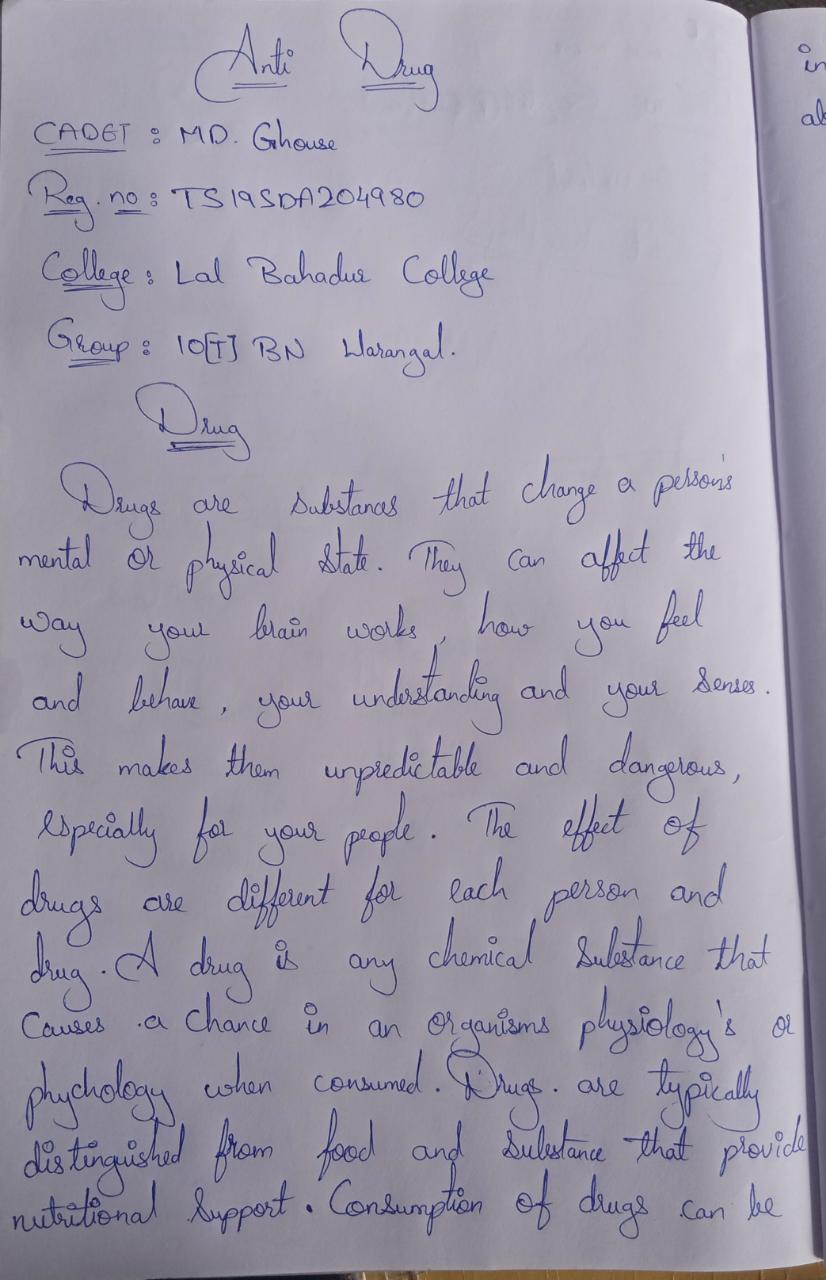 Anti Drug
CADET : MD. Ghouse
Reg. no : TS19SDA204980
College : Lal Bahadur College
Group : 10[T] BN Warangal.
Drug
Drugs are substances that change a person's
mental or physical state. They can affect the
way your brain works, how you feel
and behave, your understanding and your senses.
This makes them unpredictable and dangerous,
especially for your people. The effect of
drugs are different for each person and
drug. A drug is any chemical substance that
causes a chance in an organisms physiology's or
phychology when consumed. Drugs. are typically
distinguished from food and substance that provide
nutritional support. Consumption of drugs can be
in